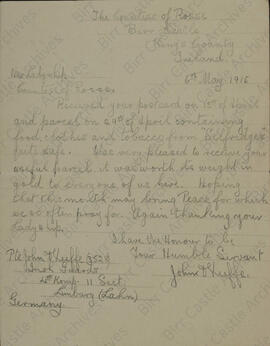 The Countess of Rosse
Birr Castle
Kings County
Ireland.
6th May 1916
Her Ladyship
Countess of Rosse.
Received your postcard on 15th of April
and parcel on 29th of April containing
food, clothes and tobacco from "Selfridges"
safe. Was very pleased to receive your
useful parcel, it was worth its weight in
gold to everyone of us here. Hoping
that this month may bring Peace for which
we so often pray for. Again thanking your
Ladyship.
I have the Honour to be
Your Humble Servant
Pte John
Irish Guards
John
4th Komp. 11
Limburg (Lahn)
Germany
Birr Castle Archives